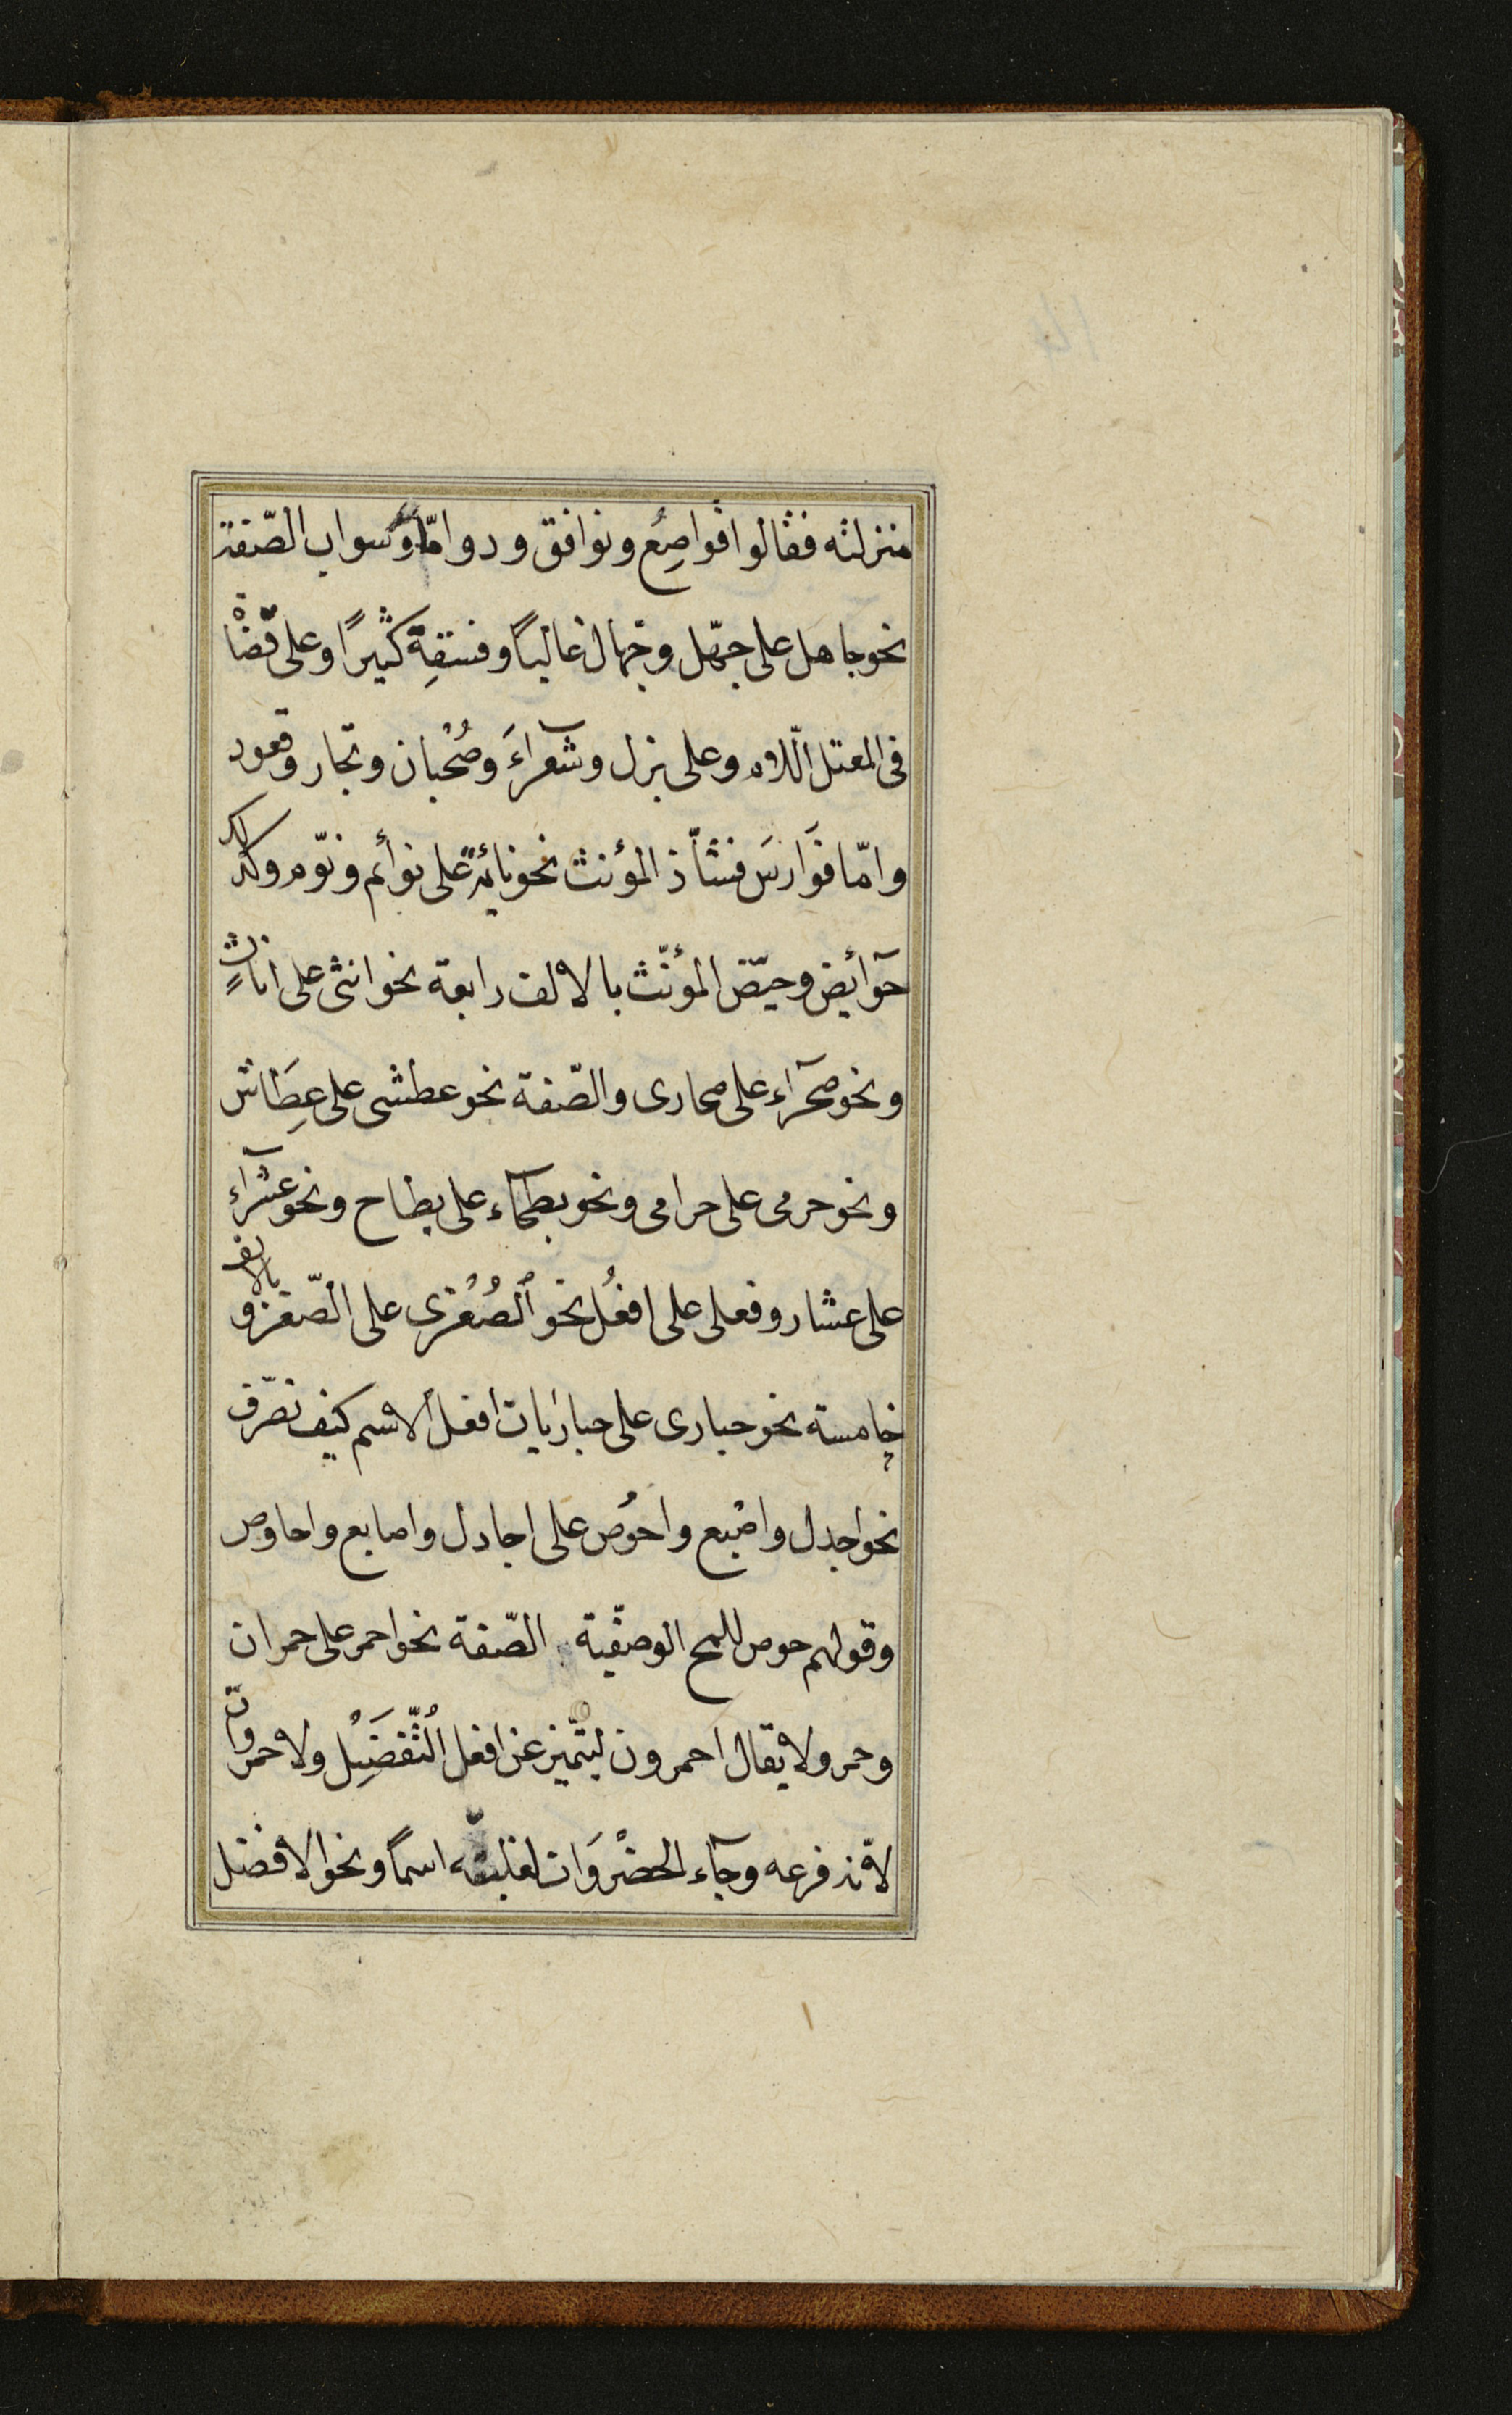 منزلته فقالوا قواصِعُ ونوافق ودوامّ وسواب الصّفة
نحو جاهل على جهّل وجهّال غالبًا وفسقةٍ كثيرًا وعلى قضاة
فى المعتل اللّام وعلى بزل وشعرآءَ وصُحْبان وتجار وقعود
وامّا فَوَارسَ فشاّذ المؤنث نحو نائمةٍ على نوائم ونوّم وكذلك
حوآئض وحيّض المؤنّث بالالف رابعة نحو انثى على اناثٍ
ونحو صحرآء على صحارى والصّفة نحو عطشى على عِطَاش
ونحو حرمى على حرامى ونحو بطحآء على بطاح ونحو عشرآء
على عشار وفعلى على افعُل نحو الصُغرى على الصّغر وبالالف
خامسة نحو حبارى على حباريات افعل الاسم كيف تصرّف
نحو اجدل واصبع واحوُص على اجادل واصابع واحاوص
وقولهم حوص للمح الوصفيّة الصّفة نحو احمر على حمران
وحمر ولا يقال احمرون ليتميّز عن افعل التّفضيل ولا حمراوات
لانّه فرعه وجآء الخضْرَوَات لغلبته اسمًا ونحو الافضل